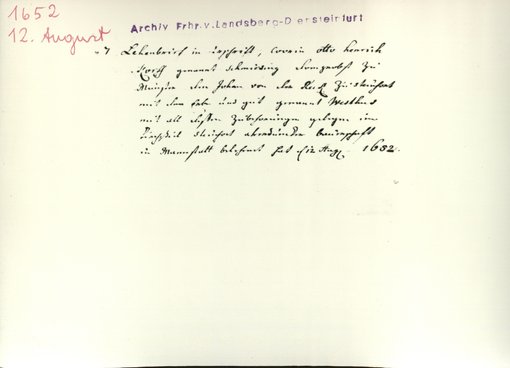 1652
12. August
Archiv Frhr.v.Landsberg-D ersteirfurt
7 Lehenbrief in abschrift, Corin Otto henrich
Korff genannt schmising Domprobst zu
Münster den Johan von der Reck zu steinfort
mit dem Erbe und gut genannt Westhus
mit all dessen Zubehörungen gelegen im
Kirchspiel steinfort bauerschaft
in Mannstatt belehnet hat 12 Aug 1652.